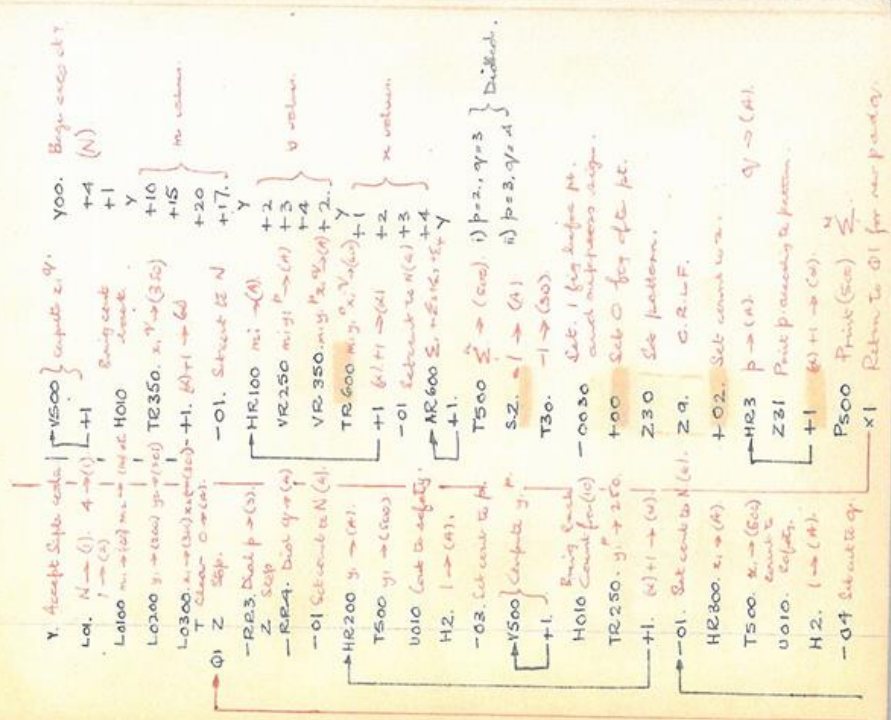 Y. Accept
L01. N → (1). 4 → (1).
1 → (2)
L0100 m₁ → (100)
L0200 y₁ → (200) y₂ → (201)
L0300. x₁ → (300) x₂ → (301)
T Clear 0 → (A).
Q1 Z Stop.
-RR3. Dial p → (3).
Z Stop
-RR4. Dial q → (4)
-01 Set count to N (A).
HR200 y₁ → (A).
T500 y₁ → (500)
U010 Count to safety.
H2. 1 → (A).
-03. Set count to p.
V500 } Compute y₁ p.
+1.
H010 Bring back Count from (10)
TR250. y₁ᵖ → 250.
+1. (4)+1 → (4).
-01. Set count to N (A).
HR300. x₁ → (A)
T500. x₁ → (500)
U010. Count to safety.
H2. 1 → (A).
-04 Set count to q.
V500 } Compute x₁ q.
+1
H010 Bring count back
TR350. x₁ q → (350)
+1.
-01. Set count to N
HR100 m₁ → (A).
VR250 m₁ y₁ᵖ → (A)
VR350. m₁ y₁ᵖ x₁ q → (A)
TR600
+1
-01 Set count to N (A)
AR600
+1.
T500 Σ → (500).
S.2. -1 → (A)
T30. -1 → (30).
-0030 Set 1 fig before pt. and suppress sign.
+00 Set 0 fig after pt.
Z30 Set pattern.
Z9. C.R.L.F.
+02. Set count to 2.
HR3 p → (A). q → (A).
Z31 Print p according to pattern.
+1
P500 Print (500) Σ.
×1 Return to Q1 for new p and q.
Y00.
+4 (N)
+1
Y
+10
+15
+20
+17. } m values.
Y
+2
+3
+4
+2. } y values.
Y
+1
+2
+3
+4 } x values.
Y
i) p=2, q=3
ii) p=3, q=4 } Dialled.